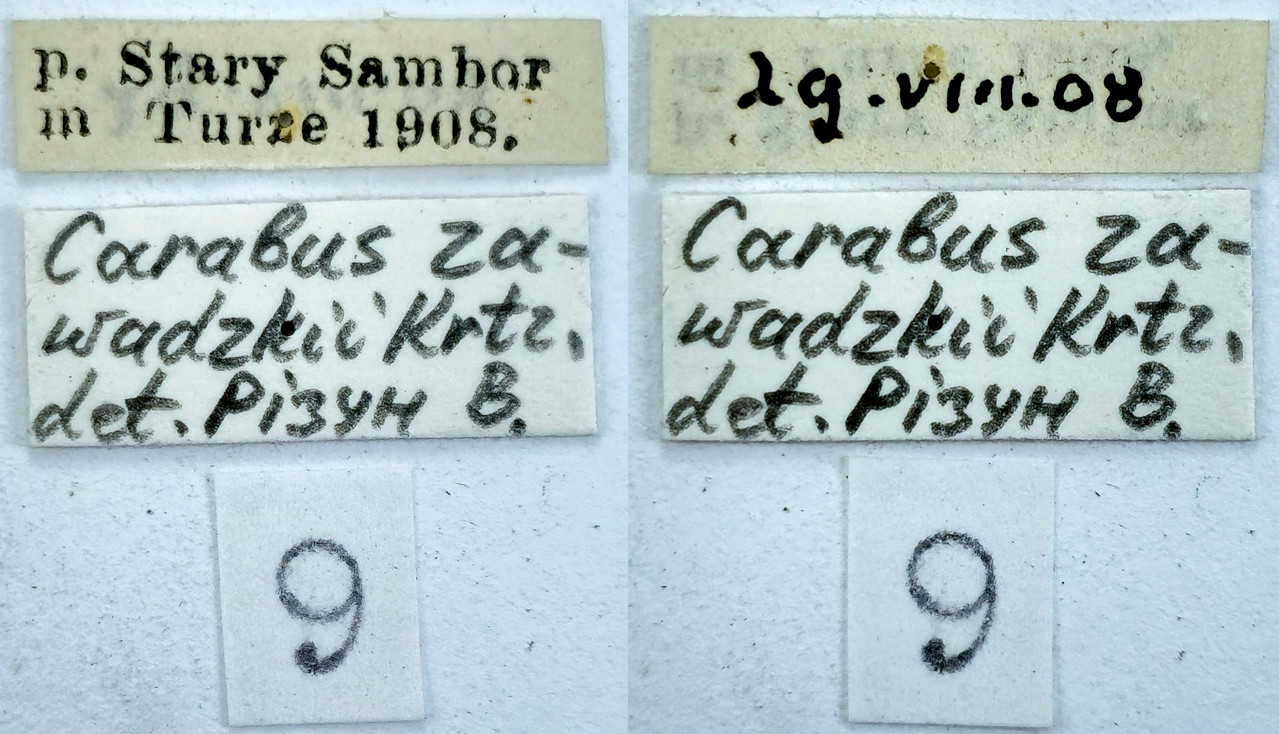 p. Stary Sambor
m Turze 1908.
Carabus za-
wadzkii Krtz.
det. Різун В.
9
29.VIII.08
Carabus za-
wadzkii Krtz.
det. Різун В.
9